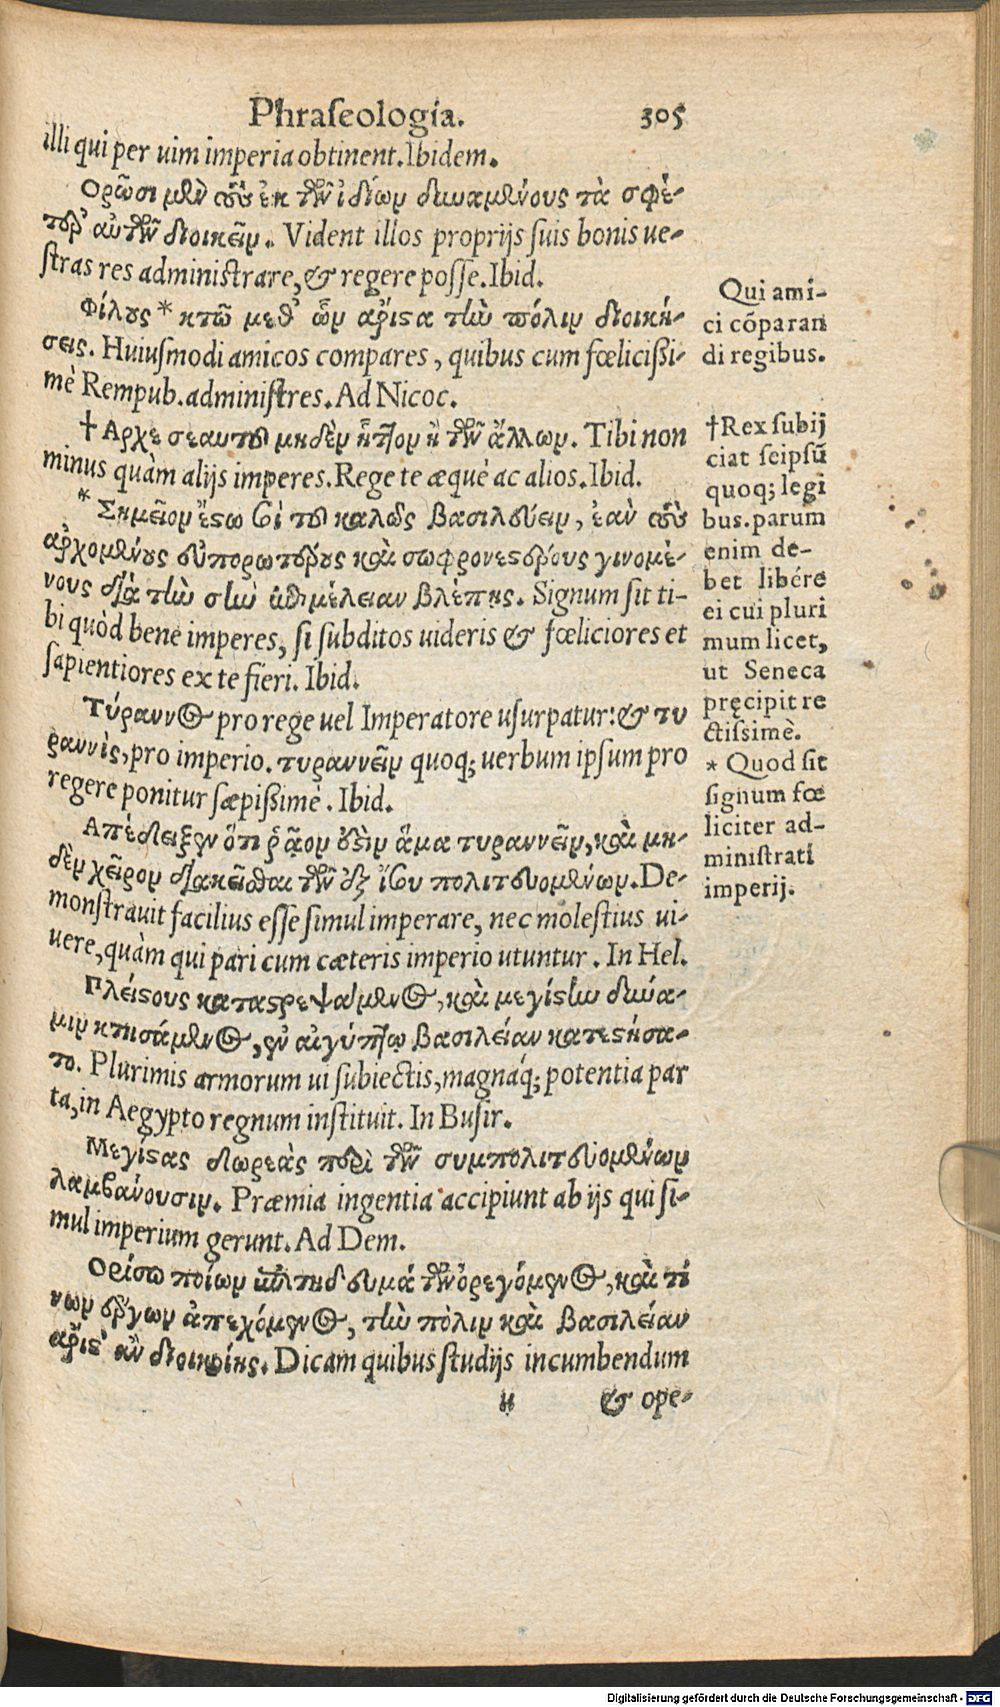 Phraseologia. 305
illi qui per uim imperia obtinent. Ibidem.
Ορῶσι μὲν τοὺς ἐκ τῶν ἰδίων δυναμένους τὰ σφέ-
τερ' αὐτῶν διοικεῖν. Vident illos proprijs suis bonis ue-
stras res administrare, & regere posse. Ibid.
Φίλους * κτῶ μεθ' ὧν ἄριστα τὴν πόλιν διοική-
σεις. Huiusmodi amicos compares, quibus cum fœlicissi-
mè Rempub. administres. Ad Nicoc.
† Αρχε σεαυτοῦ μηδὲν ἧττον ἢ τῶν ἄλλων. Tibi non
minus quàm alijs imperes. Rege te æquè ac alios. Ibid.
* Σημεῖον ἔστω σοί τοῦ καλῶς βασιλεύειν, ἐὰν τοὺς
ἀρχομένους εὐπορωτέρους καὶ σωφρονεστέρους γινομέ-
νους διὰ τὴν σὴν ἐπιμέλειαν βλέπῃς. Signum sit ti-
bi quòd bene imperes, si subditos uideris & fœliciores et
sapientiores ex te fieri. Ibid.
Τύραννος pro rege uel Imperatore usurpatur: & τυ
ραννὶς, pro imperio. τυραννεῖν quoq; uerbum ipsum pro
regere ponitur sæpissimè. Ibid.
Απέδειξεν ὅτι ῥᾷον ἐστὶν ἅμα τυραννεῖν, καὶ μη-
δὲν χεῖρον διακεῖσθαι τῶν ἐξ ἴσου πολιτευομένων. De-
monstrauit facilius esse simul imperare, nec molestius ui-
uere, quàm qui pari cum cæteris imperio utuntur. In Hel.
Πλείστους καταστρεψάμενος, καὶ μεγίστην δύνα-
μιν κτησάμενος, ἐν αἰγύπτῳ βασιλείαν κατεστήσα-
το. Plurimis armorum ui subiectis, magnáq; potentia par
ta, in Aegypto regnum instituit. In Busir.
Μεγίστας δωρεὰς παρὰ τῶν συμπολιτευομένων
λαμβάνουσιν. Præmia ingentia accipiunt ab ijs qui si-
mul imperium gerunt. Ad Dem.
Ορίσω ποίων ἐπιτηδευμάτων ὀρεγόμενος, καὶ τί
νων ἔργων ἀπεχόμενος, τὴν πόλιν καὶ βασιλείαν
ἄριστ' ἂν διοικοίης. Dicam quibus studijs incumbendum
u & ope-
Qui ami-
ci cõparan
di regibus.
† Rex subij
ciat seipsũ
quoq; legi
bus. parum
enim de-
bet libére
ei cui pluri
mum licet,
ut Seneca
pręcipit re
ctissimè.
* Quod sit
signum fœ
liciter ad-
ministrati
imperij.
Digitalisierung gefördert durch die Deutsche Forschungsgemeinschaft - DFG